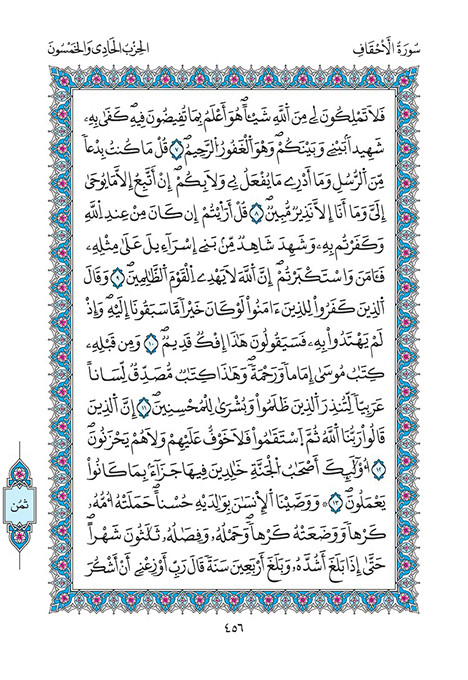 سُورَةُ الْأَحْقَافِ
الحِزْبُ الحَادِي وَالخَمْسُونَ
فَلَا تَمْلِكُونَ لِي مِنَ اَللَّهِ شَيْـًٔاۖ هُوَ أَعْلَمُ بِمَا تُفِيضُونَ فِيهِۖ كَفَىٰ بِهِۦ
شَهِيداَۢ بَيْنِي وَبَيْنَكُمْۖ وَهُوَ اَلْغَفُورُ اُلرَّحِيمُۖ ٧ قُلْ مَا كُنتُ بِدْعاٗ
مِّنَ اَلرُّسُلِ وَمَا أَدْرِے مَا يُفْعَلُ بِي وَلَا بِكُمْۖ إِنْ أَتَّبِعُ إِلَّا مَا يُوحَىٰ
إِلَيَّ وَمَا أَنَا إِلَّا نَذِيرٞ مُّبِينٞۖ ٨ قُلْ أَرَٰيْتُمْ إِن كَانَ مِنْ عِندِ اِللَّهِ
وَكَفَرْتُم بِهِۦ وَشَهِدَ شَاهِدٞ مِّنۢ بَنِي إِسْرَآءِيلَ عَلَىٰ مِثْلِهِۦ
فَـَٔامَنَ وَاسْتَكْبَرْتُمْۖ إِنَّ اَللَّهَ لَا يَهْدِے اِلْقَوْمَ اَلظَّٰلِمِينَۖ ٩ وَقَالَ
اَلذِينَ كَفَرُواْ لِلذِينَ ءَامَنُواْ لَوْ كَانَ خَيْراٗ مَّا سَبَقُونَا إِلَيْهِۖ وَإِذْ
لَمْ يَهْتَدُواْ بِهِۦ فَسَيَقُولُونَ هَٰذَا إِفْكٞ قَدِيمٞۖ ١٠ وَمِن قَبْلِهِۦ
كِتَٰبُ مُوسَىٰ إِمَاماٗ وَرَحْمَةٗۖ وَهَٰذَا كِتَٰبٞ مُّصَدِّقٞ لِّسَاناً
عَرَبِيّاٗ لِّتُنذِرَ اَلذِينَ ظَلَمُواْ وَبُشْرَىٰ لِلْمُحْسِنِينَۖ ١١ إِنَّ اَلذِينَ
قَالُواْ رَبُّنَا اَللَّهُ ثُمَّ اَسْتَقَٰمُواْ فَلَا خَوْفٌ عَلَيْهِمْ وَلَا هُمْ يَحْزَنُونَۖ
١٢ أُوْلَٰٓئِكَ أَصْحَٰبُ اُلْجَنَّةِ خَٰلِدِينَ فِيهَا جَزَآءَۢ بِمَا كَانُواْ
يَعْمَلُونَۖ ١٣ ۞ وَوَصَّيْنَا اَلْإِنسَٰنَ بِوَٰلِدَيْهِ حُسْناًۖ حَمَلَتْهُ أُمُّهُۥ
كَرْهاٗ وَوَضَعَتْهُ كَرْهاٗۖ وَحَمْلُهُۥ وَفِصَٰلُهُۥ ثَلَٰثُونَ شَهْراًۖ
حَتَّىٰ إِذَا بَلَغَ أَشُدَّهُۥ وَبَلَغَ أَرْبَعِينَ سَنَةٗ قَالَ رَبِّ أَوْزِعْنِي أَنْ أَشْكُرَ
ثُمُن
٤٥٦